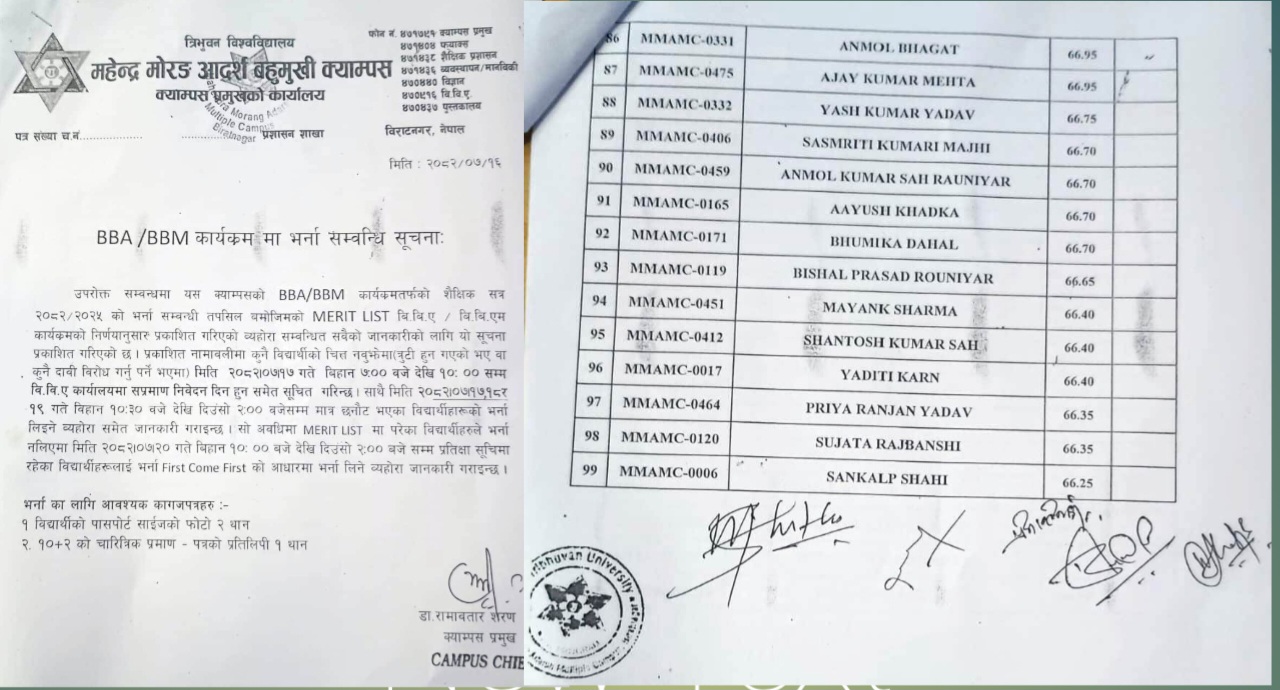 त्रिभुवन विश्वविद्यालय
महेन्द्र मोरङ आदर्श बहुमुखी क्याम्पस
क्याम्पस प्रमुखको कार्यालय
फोन नं. ४७१७९१ क्याम्पस प्रमुख
४७१४०४ फ्याक्स
४७१४३८ शैक्षिक प्रशासन
४७१४३६ व्यवस्थापन/मानविकी
४७०४४० विज्ञान
४७०८१६ बि.बि.ए.
४७०४३७ पुस्तकालय
Morang
Multiple Campus
Biratnagar
पत्र संख्या च.नं.................. .................. प्रशासन शाखा
विराटनगर, नेपाल
मिति : २०८२/०७/१६
BBA /BBM कार्यक्रम मा भर्ना सम्बन्धि सूचना:
उपरोक्त सम्बन्धमा यस क्याम्पसको BBA/BBM कार्यक्रमतर्फको शैक्षिक सत्र
२०८२/२०२५ को भर्ना सम्बन्धी तपसिल बमोजिमको MERIT LIST बि.बि.ए / बि.बि.एम
कार्यक्रमको निर्णयानुसार प्रकाशित गरिएको व्यहोरा सम्बन्धित सबैको जानकारीको लागि यो सूचना
प्रकाशित गरिएको छ । प्रकाशित नामावलीमा कुनै विद्यार्थीको चित्त नबुझेमा(त्रुटी हुन गएको भए वा
कुनै दावी विरोध गर्नु पर्ने भएमा) मिति २०८२|०७|१७ गते बिहान ७:०० बजे देखि १०: ०० सम्म
बि.बि.ए कार्यालयमा सप्रमाण निवेदन दिन हुन समेत सूचित गरिन्छ । साथै मिति २०८२|०७|१७,१८र
१९ गते बिहान १०:३० बजे देखि दिउंसो २:०० बजेसम्म मात्र छनौट भएका विद्यार्थीहरूको भर्ना
लिइने व्यहोरा समेत जानकारी गराइन्छ । सो अवधिमा MERIT LIST मा परेका विद्यार्थीहरुले भर्ना
नलिएमा मिति २०८२|०७|२० गते बिहान १०: ०० बजे देखि दिउंसो २:०० बजे सम्म प्रतिक्षा सूचिमा
रहेका विद्यार्थीहरूलाई भर्ना First Come First को आधारमा भर्ना लिने व्यहोरा जानकारी गराइन्छ ।
भर्ना का लागि आवश्यक कागजपत्रहरु :-
१ विद्यार्थीको पासपोर्ट साईजको फोटो २ थान
२. १०+२ को चारित्रिक प्रमाण - पत्रको प्रतिलिपी १ थान
डा.रामावतार शरण
क्याम्पस प्रमुख
CAMPUS CHIE
86 MMAMC-0331 ANMOL BHAGAT 66.95
87 MMAMC-0475 AJAY KUMAR MEHTA 66.95
88 MMAMC-0332 YASH KUMAR YADAV 66.75
89 MMAMC-0406 SASMRITI KUMARI MAJHI 66.70
90 MMAMC-0459 ANMOL KUMAR SAH RAUNIYAR 66.70
91 MMAMC-0165 AAYUSH KHADKA 66.70
92 MMAMC-0171 BHUMIKA DAHAL 66.70
93 MMAMC-0119 BISHAL PRASAD ROUNIYAR 66.65
94 MMAMC-0451 MAYANK SHARMA 66.40
95 MMAMC-0412 SHANTOSH KUMAR SAH 66.40
96 MMAMC-0017 YADITI KARN 66.40
97 MMAMC-0464 PRIYA RANJAN YADAV 66.35
98 MMAMC-0120 SUJATA RAJBANSHI 66.35
99 MMAMC-0006 SANKALP SHAHI 66.25
Tribhuvan University